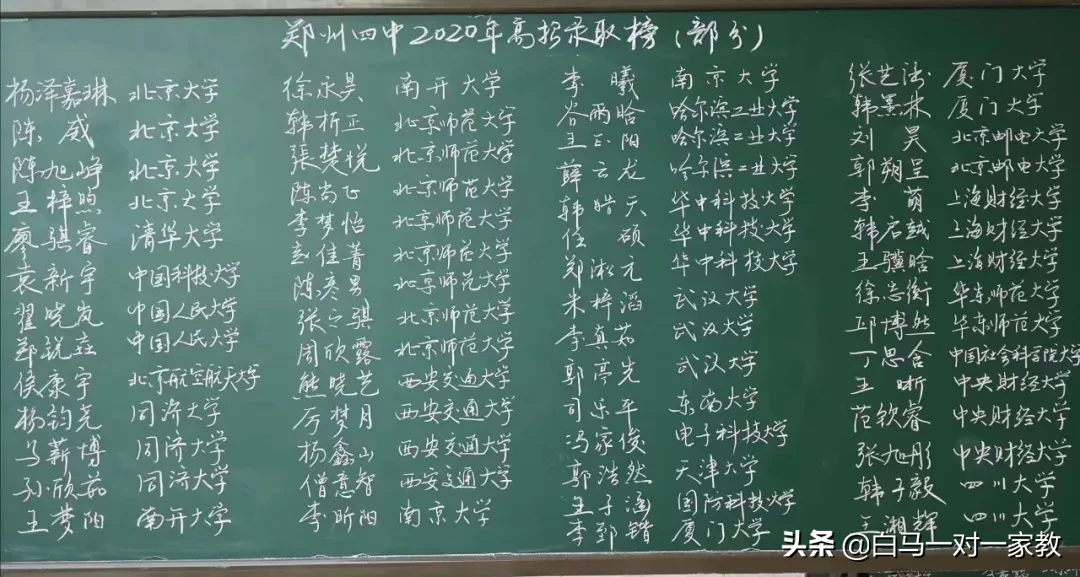 郑州四中2020年高招录取榜（部分）
杨泽嘉琳 北京大学
陈威 北京大学
陈旭峥 北京大学
王梓煦 北京大学
廖骐睿 清华大学
袁新宇 中国科技大学
翟晓岚 中国人民大学
郑锐垚 中国人民大学
侯康宇 北京航空航天大学
杨钧尧 同济大学
马薪博 同济大学
孙欣茹 同济大学
王梦阳 南开大学
徐永昊 南开大学
韩析正 北京师范大学
張楚悦 北京师范大学
陈尚飞 北京师范大学
李梦怡 北京师范大学
佳菁 北京师范大学
陈彦昜 北京师范大学
张之骐 北京师范大学
周欣露 北京师范大学
熊晓艺 西安交通大学
厉梦月 西安交通大学
杨鑫山 西安交通大学
僧意智 西安交通大学
李昕阳 南京大学
李曦 南京大学
谷雨晗 哈尔滨工业大学
王正阳 哈尔滨工业大学
薛云龙 哈尔滨工业大学
韩皓天 华中科技大学
任硕 华中科技大学
郑淞元 华中科技大学
朱梓滔 武汉大学
李真茹 武汉大学
郭亭先 武汉大学
司乐平 东南大学
冯家俊 电子科技大学
郭浩然 天津大学
王子涵 国防科技大学
李郅锴 厦门大学
张艺 厦门大学
韩熹林 厦门大学
刘昊 北京邮电大学
郭朔呈 北京邮电大学
李萌 上海财经大学
韩启越 上海财经大学
王骥晗 上海财经大学
徐志衡 华东师范大学
邱博然 华东师范大学
丁思含 中国社会科学院大学
王昕 中央财经大学
范钦睿 中央财经大学
张旭彤 中央财经大学
韩子毅 四川大学
王湘辉 四川大学
头条 @白马一对一家教